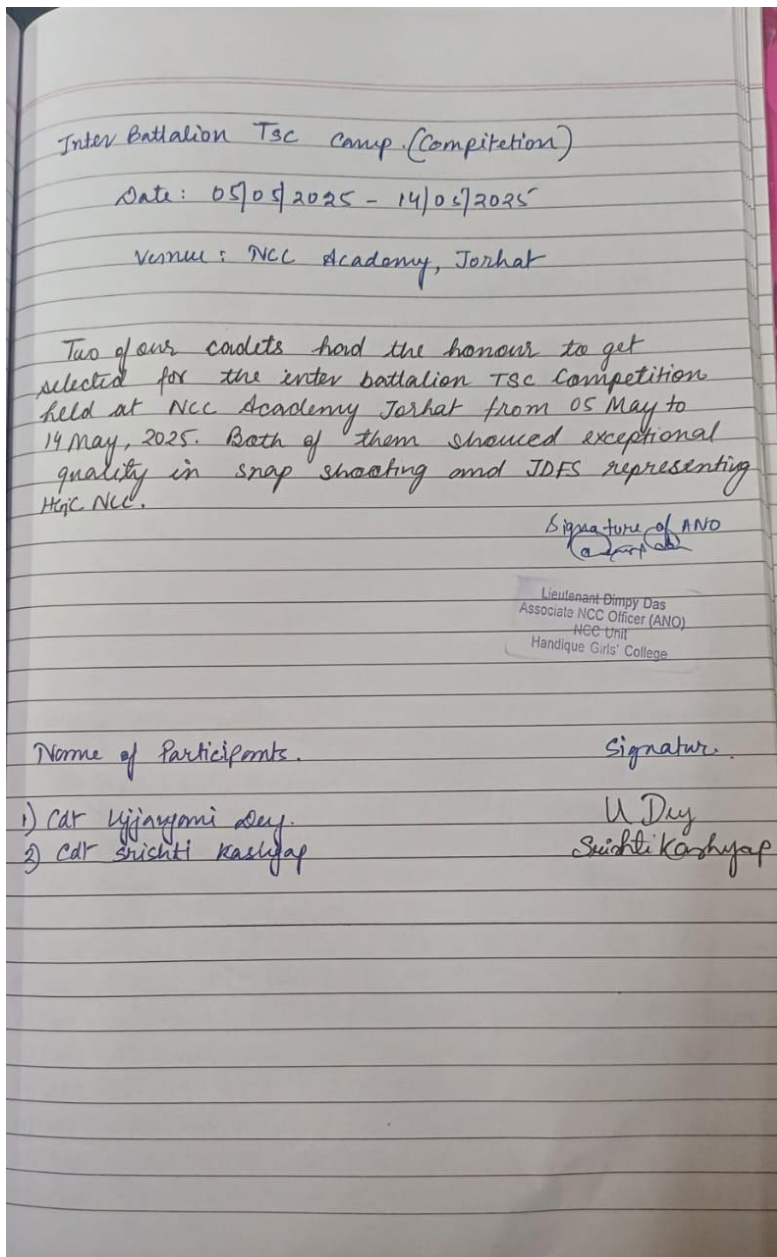 Inter Battalion TSC Camp. (Compitetion)
Date: 05/05/2025 - 14/05/2025
Vernue: NCC Academy, Jorhat
Two of our cadets had the honour to get
selected for the inter battalion TSC Competition
held at NCC Academy Jorhat from 05 May to
14 May, 2025. Both of them showed exceptional
quality in snap shooting and JDFS representing
HGC NCC.
Signature of ANO
Lieutenant Dimpy Das
Associate NCC Officer (ANO)
NCC Unit
Handique Girls' College
Name of Participants. Signatur.
1) Cdt Ujjayani Dey. U Dey
2) Cdt Srishti Kashyap Srishti Kashyap